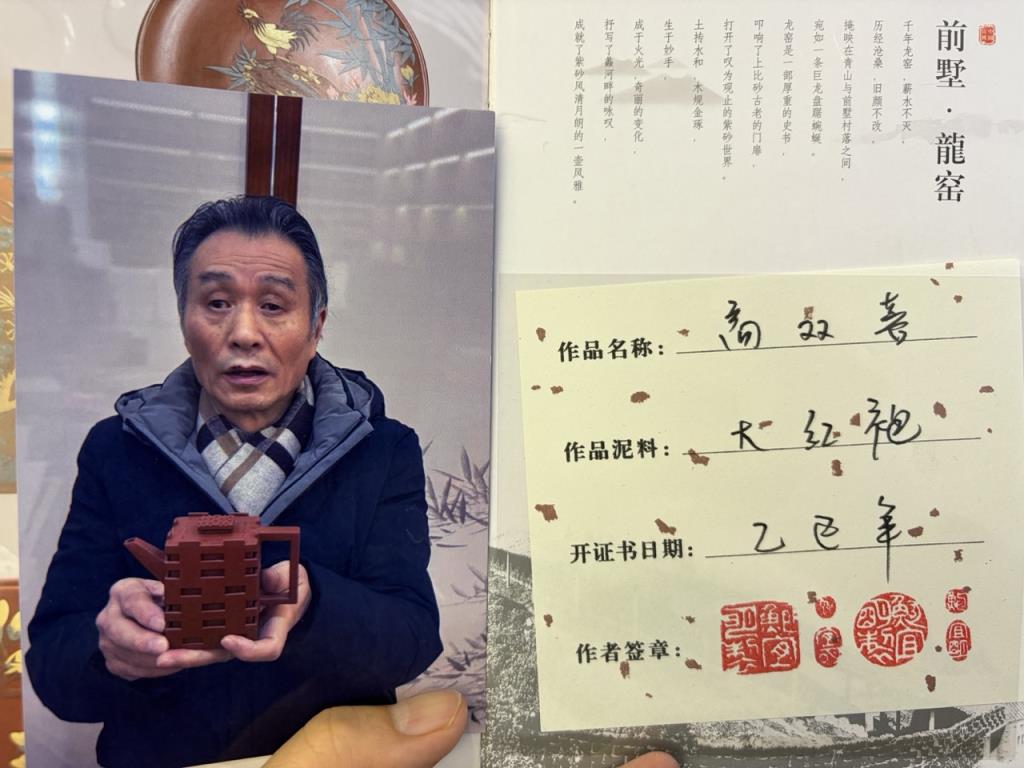 前墅·龍窑
千年龙窑，薪火不灭，
历经沧桑，旧颜不改，
掩映在青山与前墅村落之间，
宛如一条巨龙盘踞蜿蜒。
龙窑是一部厚重的史书，
叩响了上比砂古老的门扉，
打开了叹为观止的紫砂世界。
土抟水和，木规金琢，
生于妙手，
成于火光，奇丽的变化，
抒写了蠡河畔的咏叹，
成就了紫砂风清月朗的一壶风雅。
作品名称：高双喜
作品泥料：大红袍
开证书日期：乙巳年
作者签章：